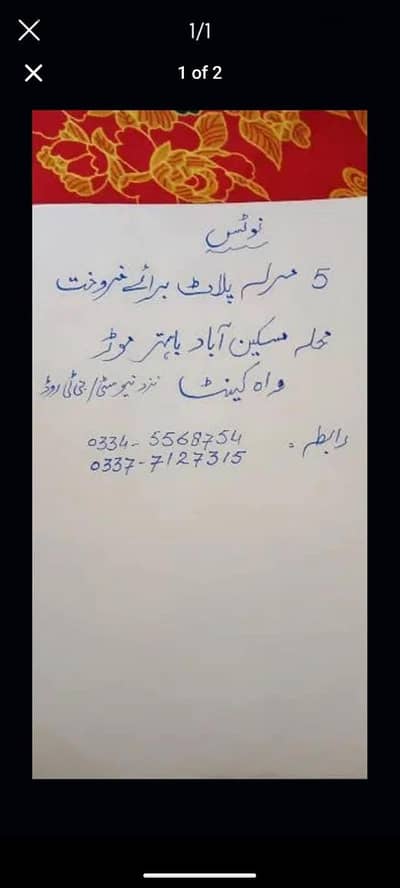 1/1
1 of 2
نوٹس
5 مرلہ پلاٹ برائے فروخت
محلہ مسکین آباد باہتر موڑ
واہ کینٹ نزد نیو سٹی/جی ٹی روڈ
رابطہ: 0334-5568754
0337-7127315